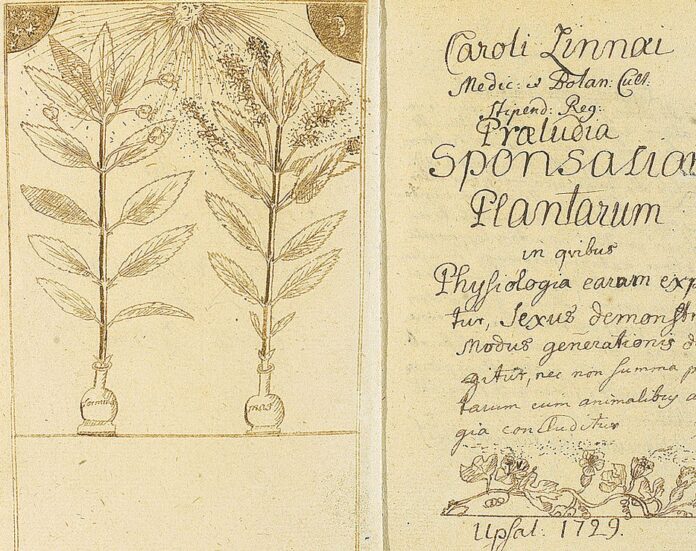 femina
mas
Caroli Linnæi
Medic: & Botan: Cult:
Stipend: Reg:
Præludia
Sponsalia
Plantarum
in qvibus
Physiologia earum exp
tur, Sexus demonstr
Modus generationis d
gitur, nec non summa p
tarum cum animalibus a
gia concluditur
Upsal. 1729.